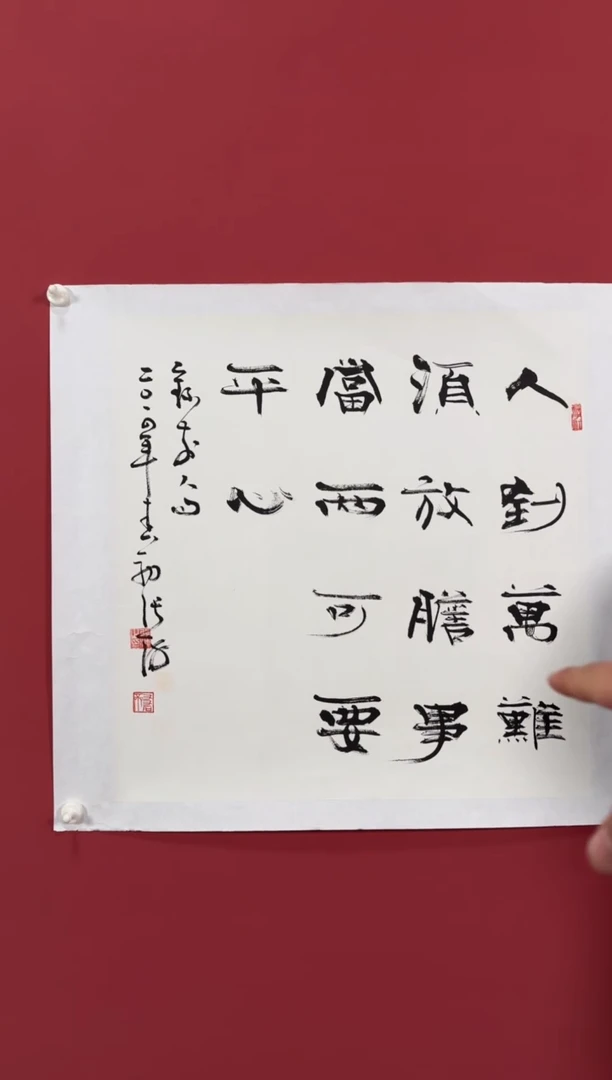 人對萬難
須放膽事
當兩可要
平心
錄前人句
二〇一四年春初張海